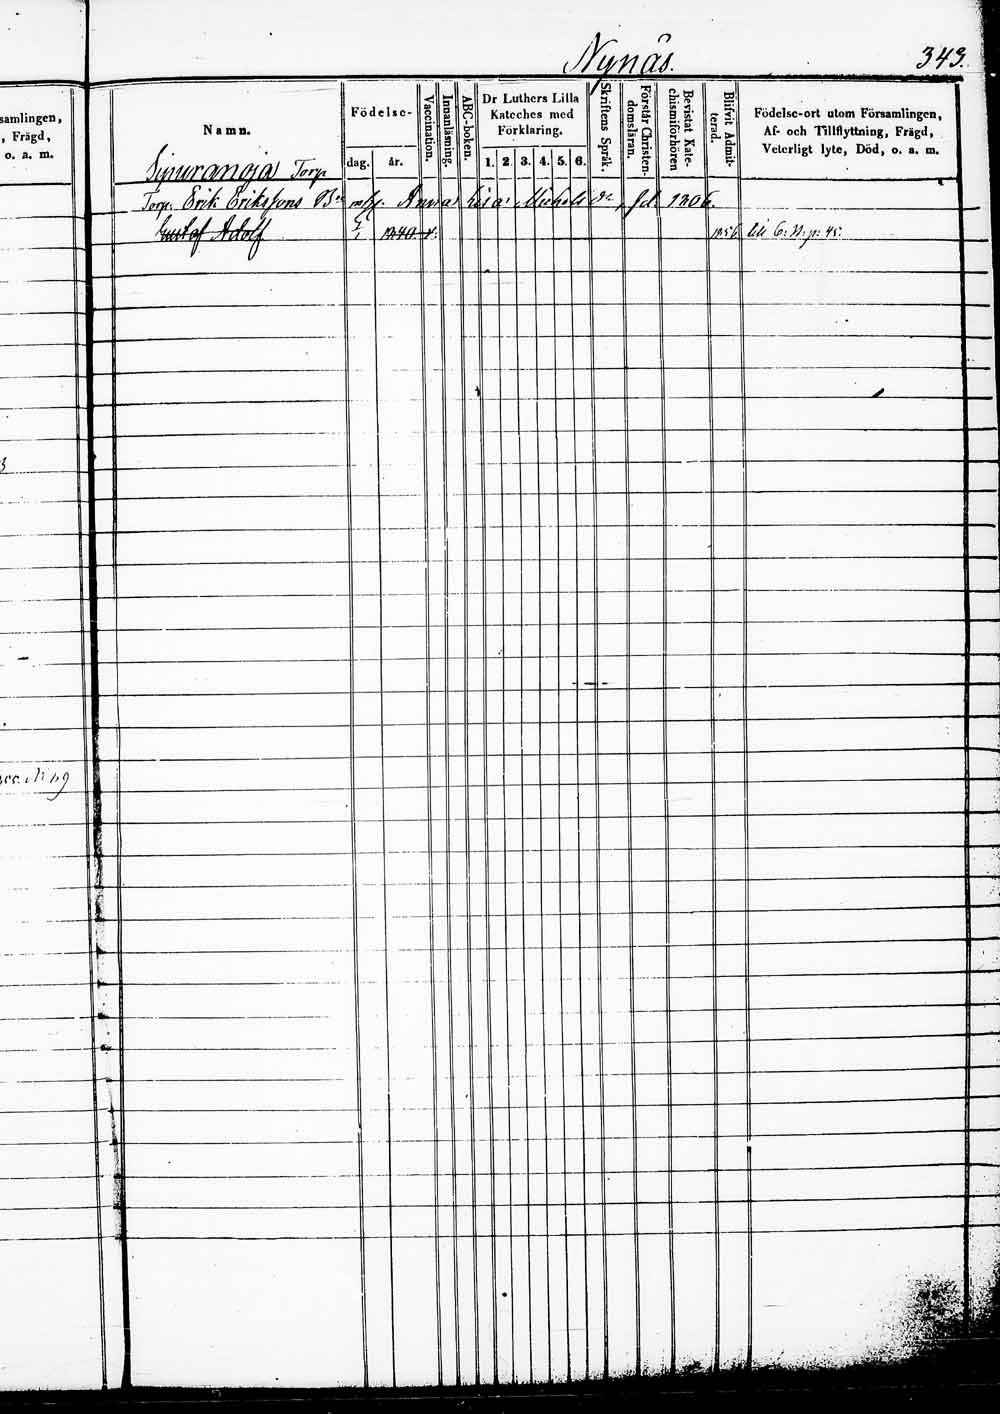 Nynäs.
343.
samlingen,
, Frägd,
o. a. m.
Namn.
Födelse-
dag.
år.
Vaccination.
Innanläsning.
ABC-boken.
Dr Luthers Lilla
Kateches med
Förklaring.
1. 2. 3. 4. 5. 6.
Skriftens Språk.
Förstår Christen-
domsläran.
Bevistat Kate-
chismiförhören
Blifvit Admit-
terad.
Födelse-ort utom Församlingen,
Af- och Tillflyttning, Frägd,
Veterligt lyte, Död, o. a. m.
Torp
Torp. Erik Erikssons Anna Lisa Michels fd 1806.
Gustaf Adolf 1840. 1856 till